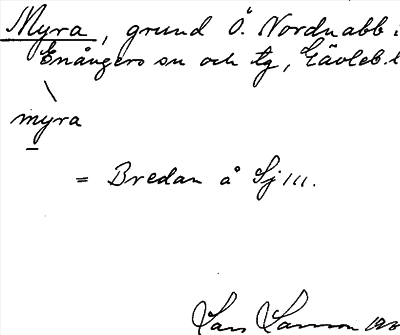 Myra, grund Ö. Nordnabb i
Enångers sn och tg, Gävleb. l
myra
= Bredan å Sj 111.
Lars Larsson 193